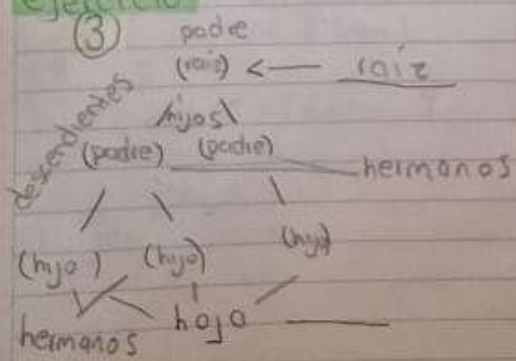 ejercicio
3
padre
(raiz) raiz
hijos
descendientes
(padre) (padre) hermanos
(hijo) (hijo) (hijo)
hermanos hoja